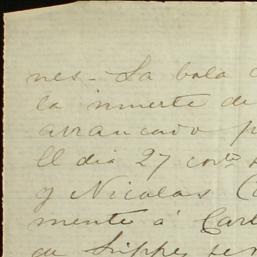 nes - La bala
la muerte de
arrancado p
El dia 27 corte
y Nicolas Ca
mente á Carl
de